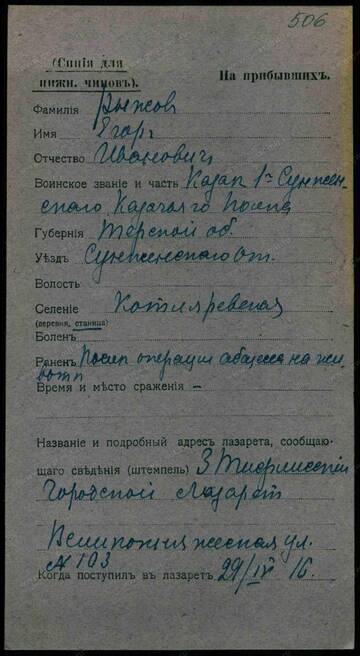 506
(Синія для
нижн. чиновъ).
На прибывшихъ.
Фамилія Рыжов
Имя Егор
Отчество Иванович
Воинское званіе и часть Казак 1го Сунжен-
скаго Казачьяго Полка
Губернія Терской об.
Уѣздъ Сунженскаго от.
Волость
Селеніе Котляревская
(деревня, станица)
Боленъ
Раненъ После операции абцесса на жи-
воте
Время и мѣсто сраженія –
Названіе и подробный адресъ лазарета, сообщаю-
щаго свѣдѣнія (штемпель) 3 Тифлисский
Городской Лазарет
Великокняжеская ул.
№ 103
Когда поступилъ въ лазаретъ 29/IV 16.